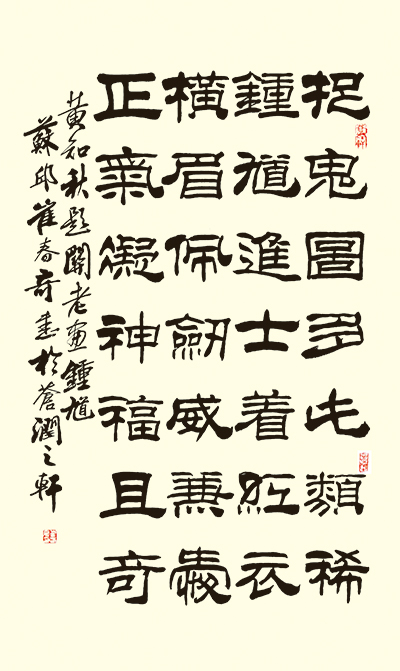 捉鬼圖多此類稀
鍾馗進士着紅衣
橫眉佩劒威兼愛
正氣凝神福且奇
黃知秋題關老畫鍾馗
蘇邱崔春奇書於蒼潤之軒